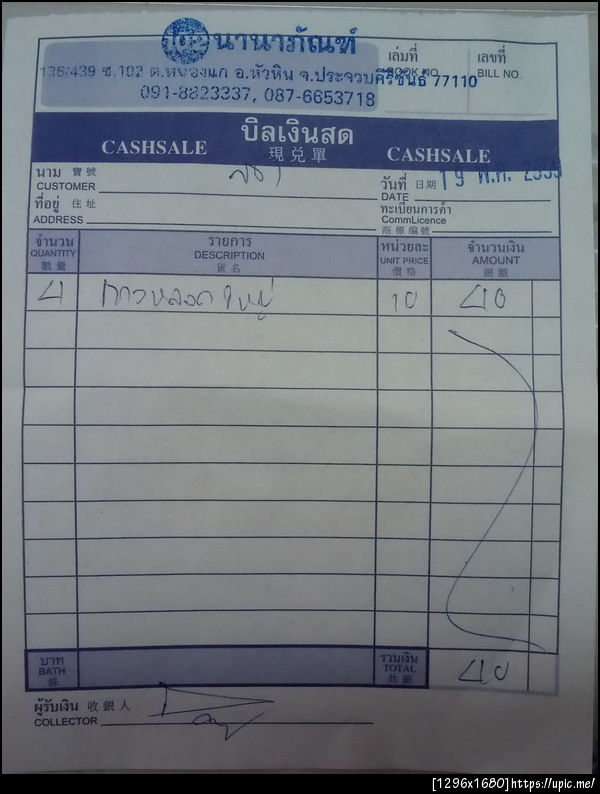 นานาภัณฑ์
136/439 ซ.102 ต.หนองแก อ.หัวหิน จ.ประจวบคีรีขันธ์ 77110
091-8823337, 087-6653718
เล่มที่
BOOK NO.
เลขที่
BILL NO.
บิลเงินสด
CASHSALE 現兑單 CASHSALE
นาม 寶號
CUSTOMER
วันที่ 日期 19 พ.ค. 2559
DATE
ที่อยู่ 住址
ADDRESS
ทะเบียนการค้า
CommLicence
商標編號
จำนวน รายการ หน่วยละ จำนวนเงิน
QUANTITY DESCRIPTION UNIT PRICE AMOUNT
數量 貨名 價格 銀額
4 กาวหลอดใหญ่ 10 40
บาท รวมเงิน
BATH TOTAL 40
銖 共銀
ผู้รับเงิน 收銀人
COLLECTOR
[1296x1680]https://upic.me/